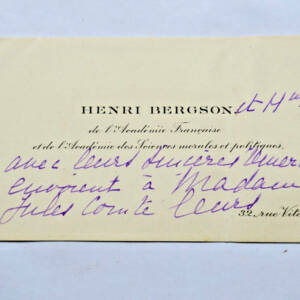 HENRI BERGSON et Mme
de l'Académie Française
et de l'Académie des Sciences morales et politiques.
avec leurs sincères
envoient à Madam
Jules Comte leurs
32, rue Vit